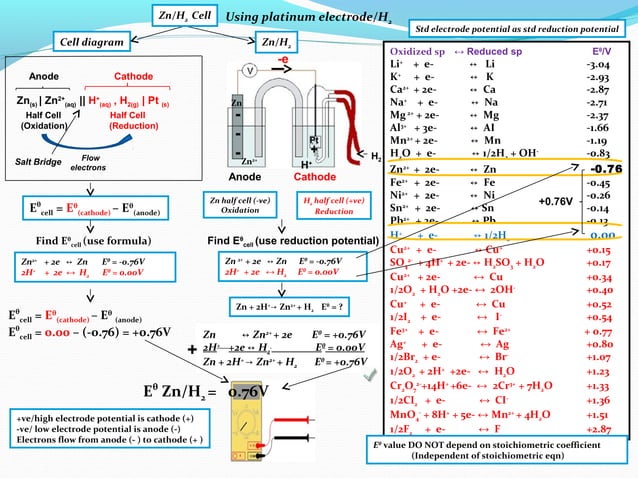 Zn/H₂ Cell
Using platinum electrode/H₂
Std electrode potential as std reduction potential
Cell diagram
Zn/H₂
Anode Cathode
Zn(s) | Zn²⁺(aq) || H⁺(aq) , H₂(g) | Pt (s)
Half Cell Half Cell
(Oxidation) (Reduction)
Salt Bridge
Flow
electrons
-e
V
Zn
Pt
Zn²⁺
H⁺
H₂
Anode Cathode
Zn half cell (-ve)
Oxidation
H₂ half cell (+ve)
Reduction
Eᶿcell = Eᶿ(cathode) – Eᶿ(anode)
Find Eᶿcell (use formula)
Zn²⁺ + 2e ↔ Zn Eᶿ = -0.76V
2H⁺ + 2e ↔ H₂ Eᶿ = 0.00V
Eᶿcell = Eᶿ(cathode) – Eᶿ (anode)
Eᶿcell = 0.00 – (-0.76) = +0.76V
Find Eᶿcell (use reduction potential)
Zn ²⁺ + 2e ↔ Zn Eᶿ = -0.76V
2H⁺ + 2e ↔ H₂ Eᶿ = 0.00V
Zn + 2H⁺→ Zn²⁺ + H₂ Eᶿ = ?
Zn ↔ Zn²⁺ + 2e Eᶿ = +0.76V
+ 2H⁺ +2e ↔ H₂ Eᶿ = 0.00V
Zn + 2H⁺→ Zn²⁺ + H₂ Eᶿ = +0.76V
Eᶿ Zn/H₂ = 0.76V
+ve/high electrode potential is cathode (+)
-ve/ low electrode potential is anode (-)
Electrons flow from anode (- ) to cathode (+ )
Oxidized sp ↔ Reduced sp Eᶿ/V
Li⁺ + e- ↔ Li -3.04
K⁺ + e- ↔ K -2.93
Ca²⁺ + 2e- ↔ Ca -2.87
Na⁺ + e- ↔ Na -2.71
Mg ²⁺ + 2e- ↔ Mg -2.37
Al³⁺ + 3e- ↔ Al -1.66
Mn²⁺ + 2e- ↔ Mn -1.19
H₂O + e- ↔ 1/2H₂ + OH⁻ -0.83
Zn²⁺ + 2e- ↔ Zn -0.76
Fe²⁺ + 2e- ↔ Fe -0.45
Ni²⁺ + 2e- ↔ Ni -0.26
Sn²⁺ + 2e- ↔ Sn -0.14
Pb²⁺ + 2e- ↔ Pb -0.13
H⁺ + e- ↔ 1/2H₂ 0.00
Cu²⁺ + e- ↔ Cu⁺ +0.15
SO₄²⁻ + 4H⁺ + 2e- ↔ H₂SO₃ + H₂O +0.17
Cu²⁺ + 2e- ↔ Cu +0.34
1/2O₂ + H₂O +2e- ↔ 2OH⁻ +0.40
Cu⁺ + e- ↔ Cu +0.52
1/2I₂ + e- ↔ I⁻ +0.54
Fe³⁺ + e- ↔ Fe²⁺ + 0.77
Ag⁺ + e- ↔ Ag +0.80
1/2Br₂ + e- ↔ Br⁻ +1.07
1/2O₂ + 2H⁺ +2e- ↔ H₂O +1.23
Cr₂O₇²⁻+14H⁺ +6e- ↔ 2Cr³⁺ + 7H₂O +1.33
1/2Cl₂ + e- ↔ Cl⁻ +1.36
MnO₄⁻ + 8H⁺ + 5e- ↔ Mn²⁺ + 4H₂O +1.51
1/2F₂ + e- ↔ F +2.87
+0.76V
Eᶿ value DO NOT depend on stoichiometric coefficient
(Independent of stoichiometric eqn)